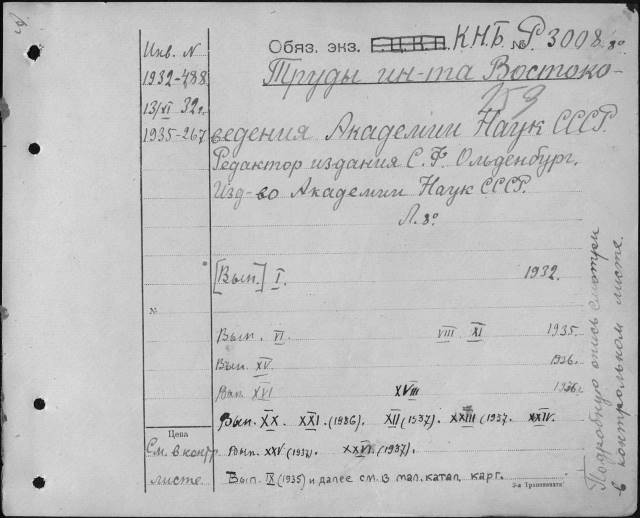 Инв. N
1932-488
13/VI 32г.
1935-267
Обяз. экз. Е.Ц.К.Н. К.Н.Б. № Р 3008 8°
Труды ин-та Востоко-
259
ведения Академии Наук СССР.
Редактор издания С. Ф. Ольденбург.
Изд-во Академии Наук СССР.
Л. 8°
[Вып.] I. 1932.
№
Вып. VI. VIII XI 1935.
Вып. XV. 1936.
Вып. XVI XVIII 1936.
Вып. XX. XXI. (1936). XII (1937). XXIII (1937. XXIV.
Цена
См. в контр.
листе.
Вып. XXV (1937). XXVI. (1937).
Вып. IX (1935) и далее см. в мал. катал. карг.
3-я Транпечати
Подробную опись смотри
в контрольном листе.